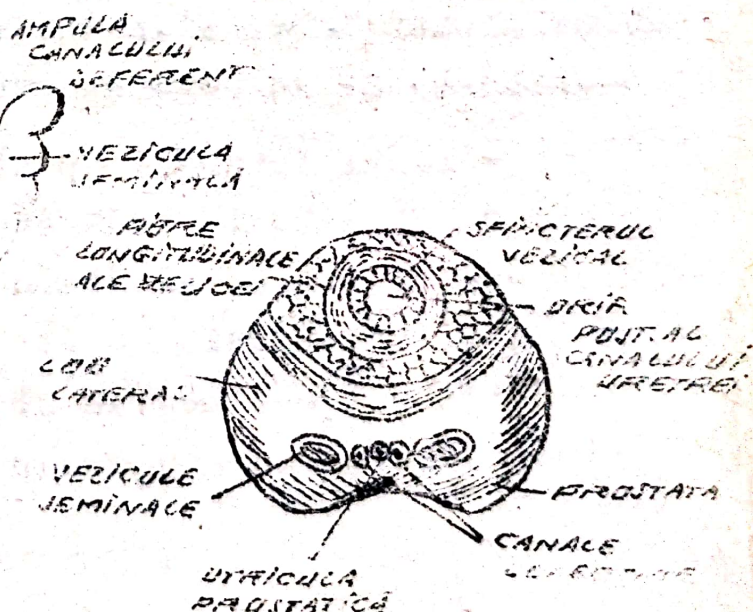 AMPULA
CANALULUI
DEFERENT
VEZICULA
SEMINALĂ
FIBRE
LONGITUDINALE
ALE VEZICEI
SFINCTERUL
VEZICAL
ORIF.
POST. AL
CANALULUI
URETREI
LOB
LATERAL
VEZICULE
SEMINALE
PROSTATA
CANALE
UTRICULA
PROSTATICĂ